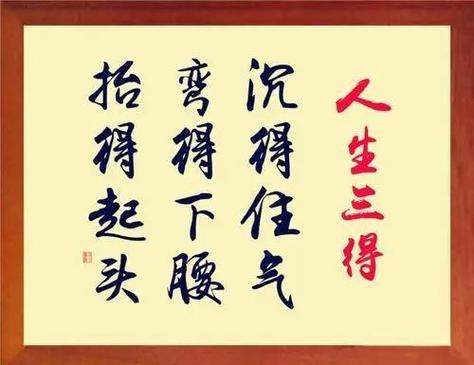 人生三得
沉得住气
弯得下腰
抬得起头